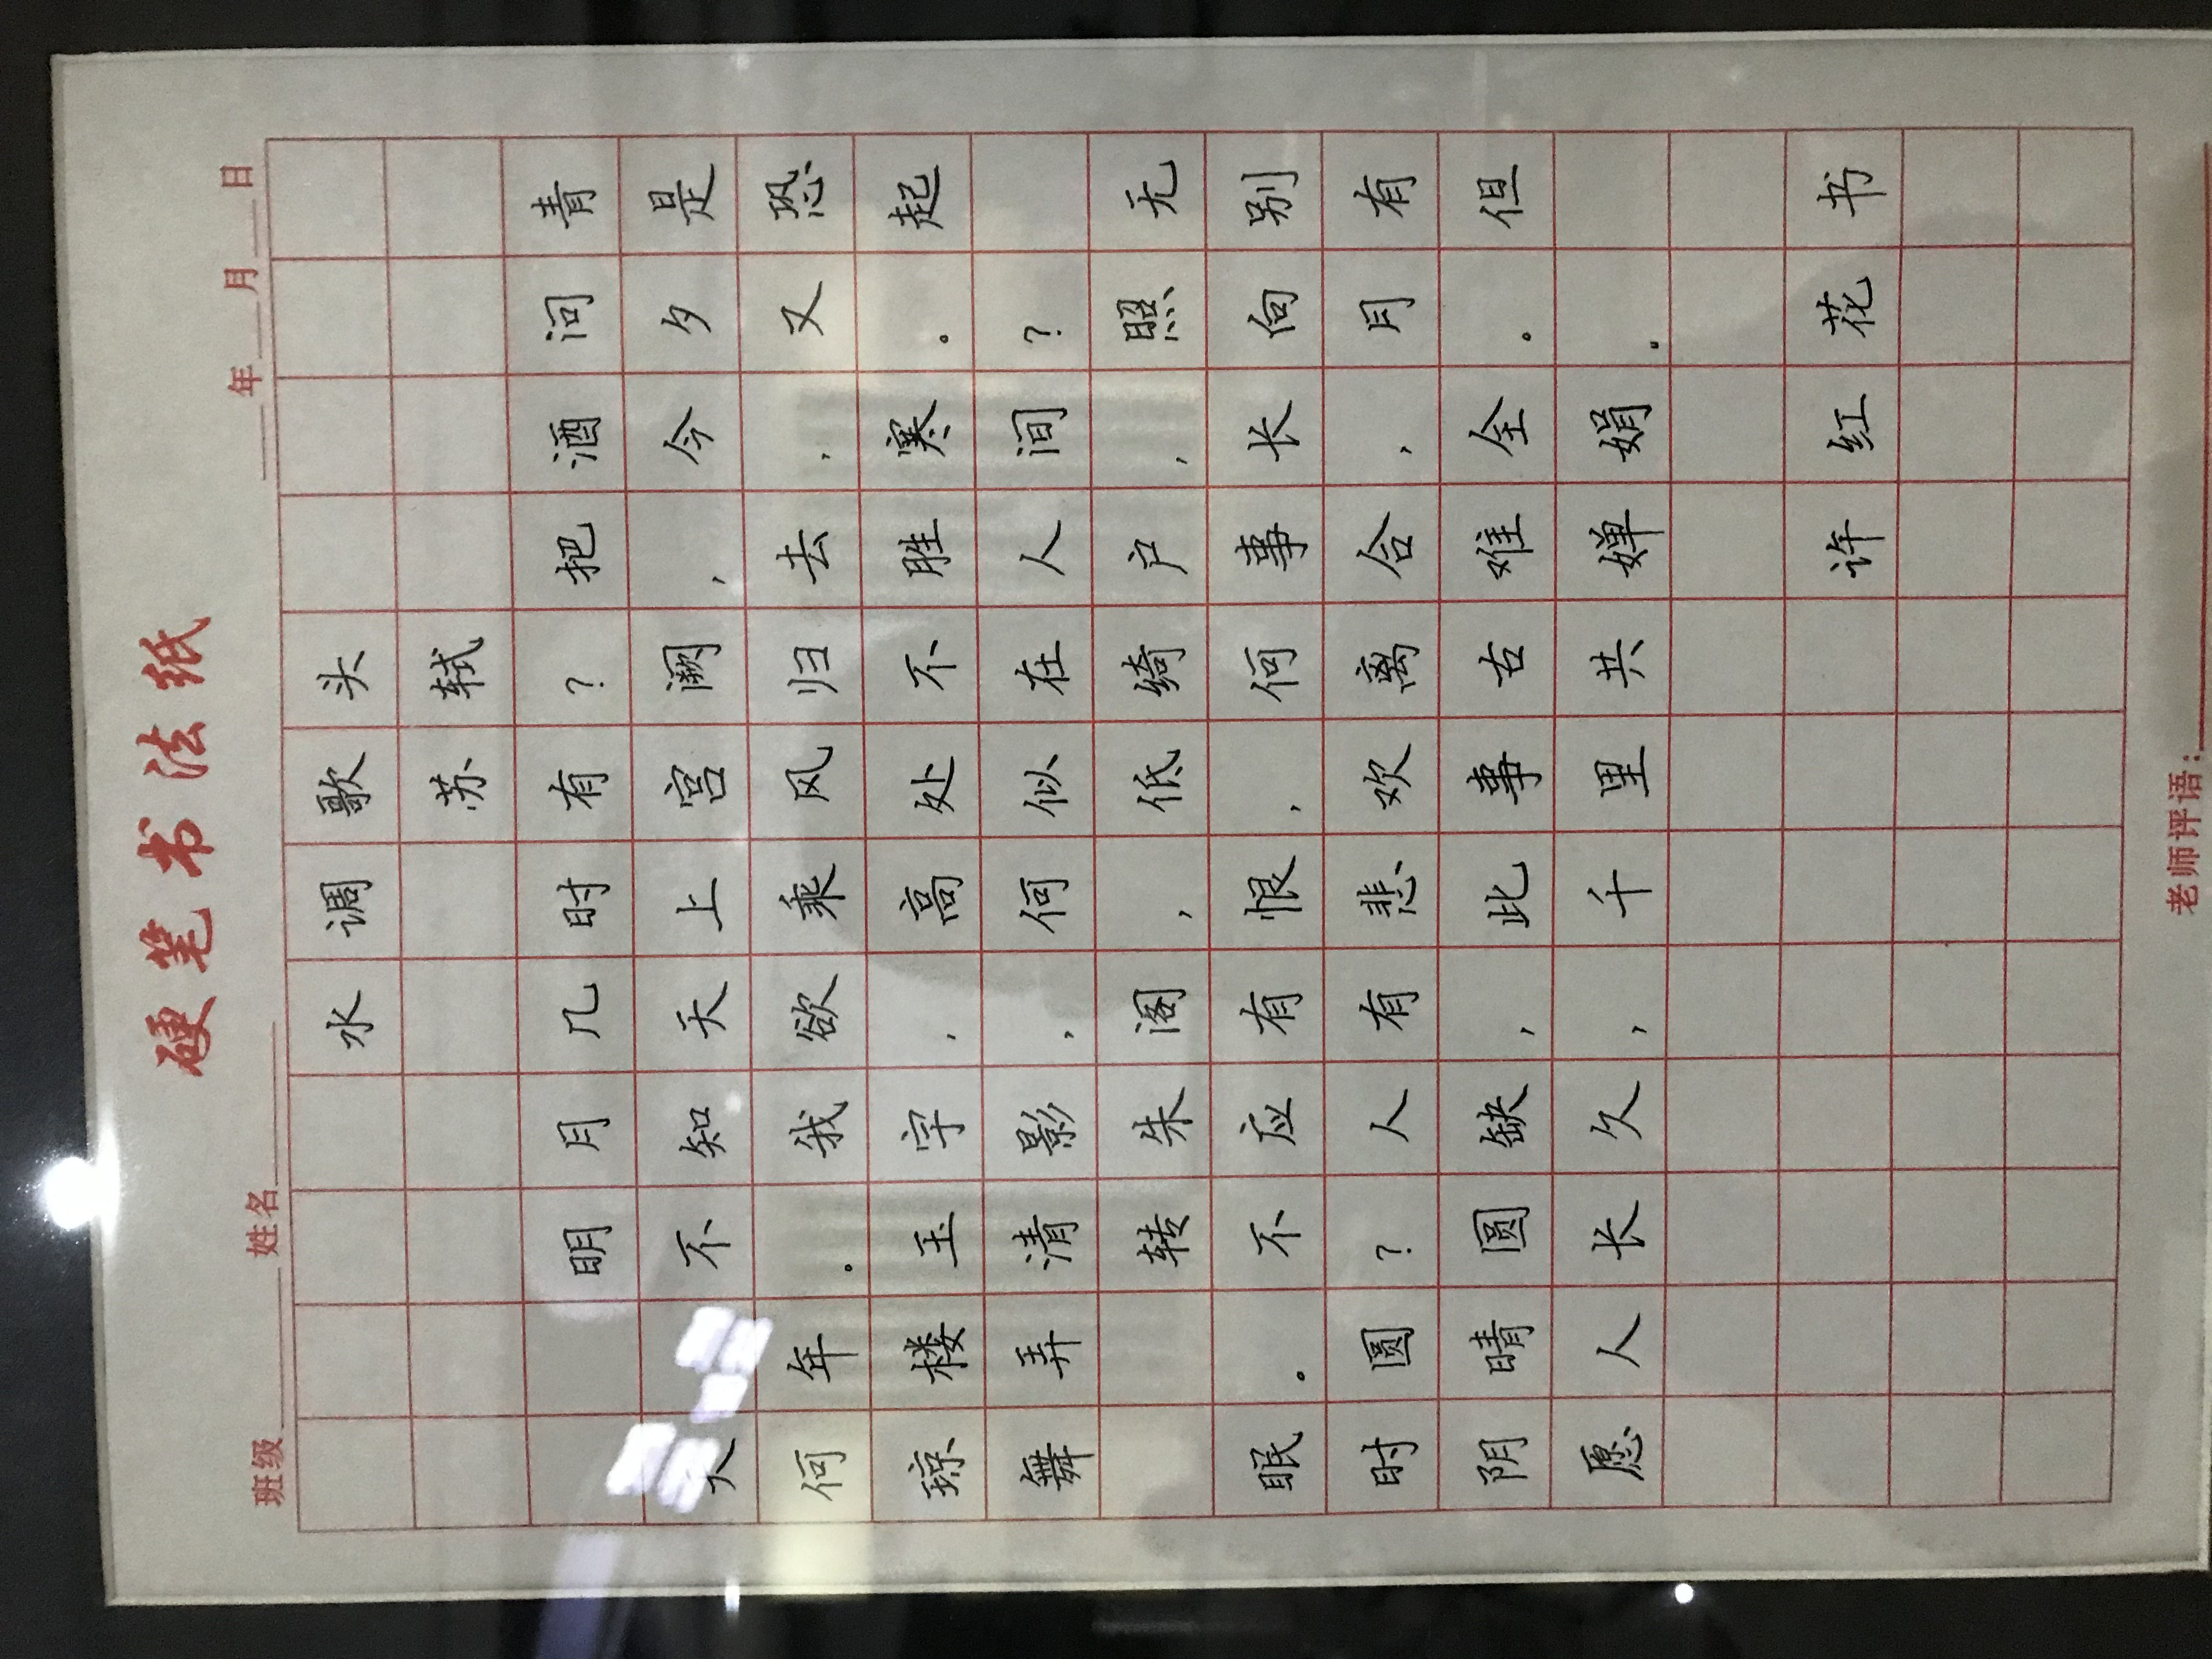 硬笔书法纸
班级 姓名 年 月 日
水调歌头
苏轼
明月几时有?把酒问青
天不知天上宫阙,今夕是
何年。我欲乘风归去,又恐
琼楼玉宇,高处不胜寒。起
舞弄清影,何似在人间?
转朱阁,低绮户,照无
眠。不应有恨,何事长向别
时圆?人有悲欢离合,月有
阴晴圆缺,此事古难全。但
愿人长久,千里共婵娟。
许红花书
老师评语: